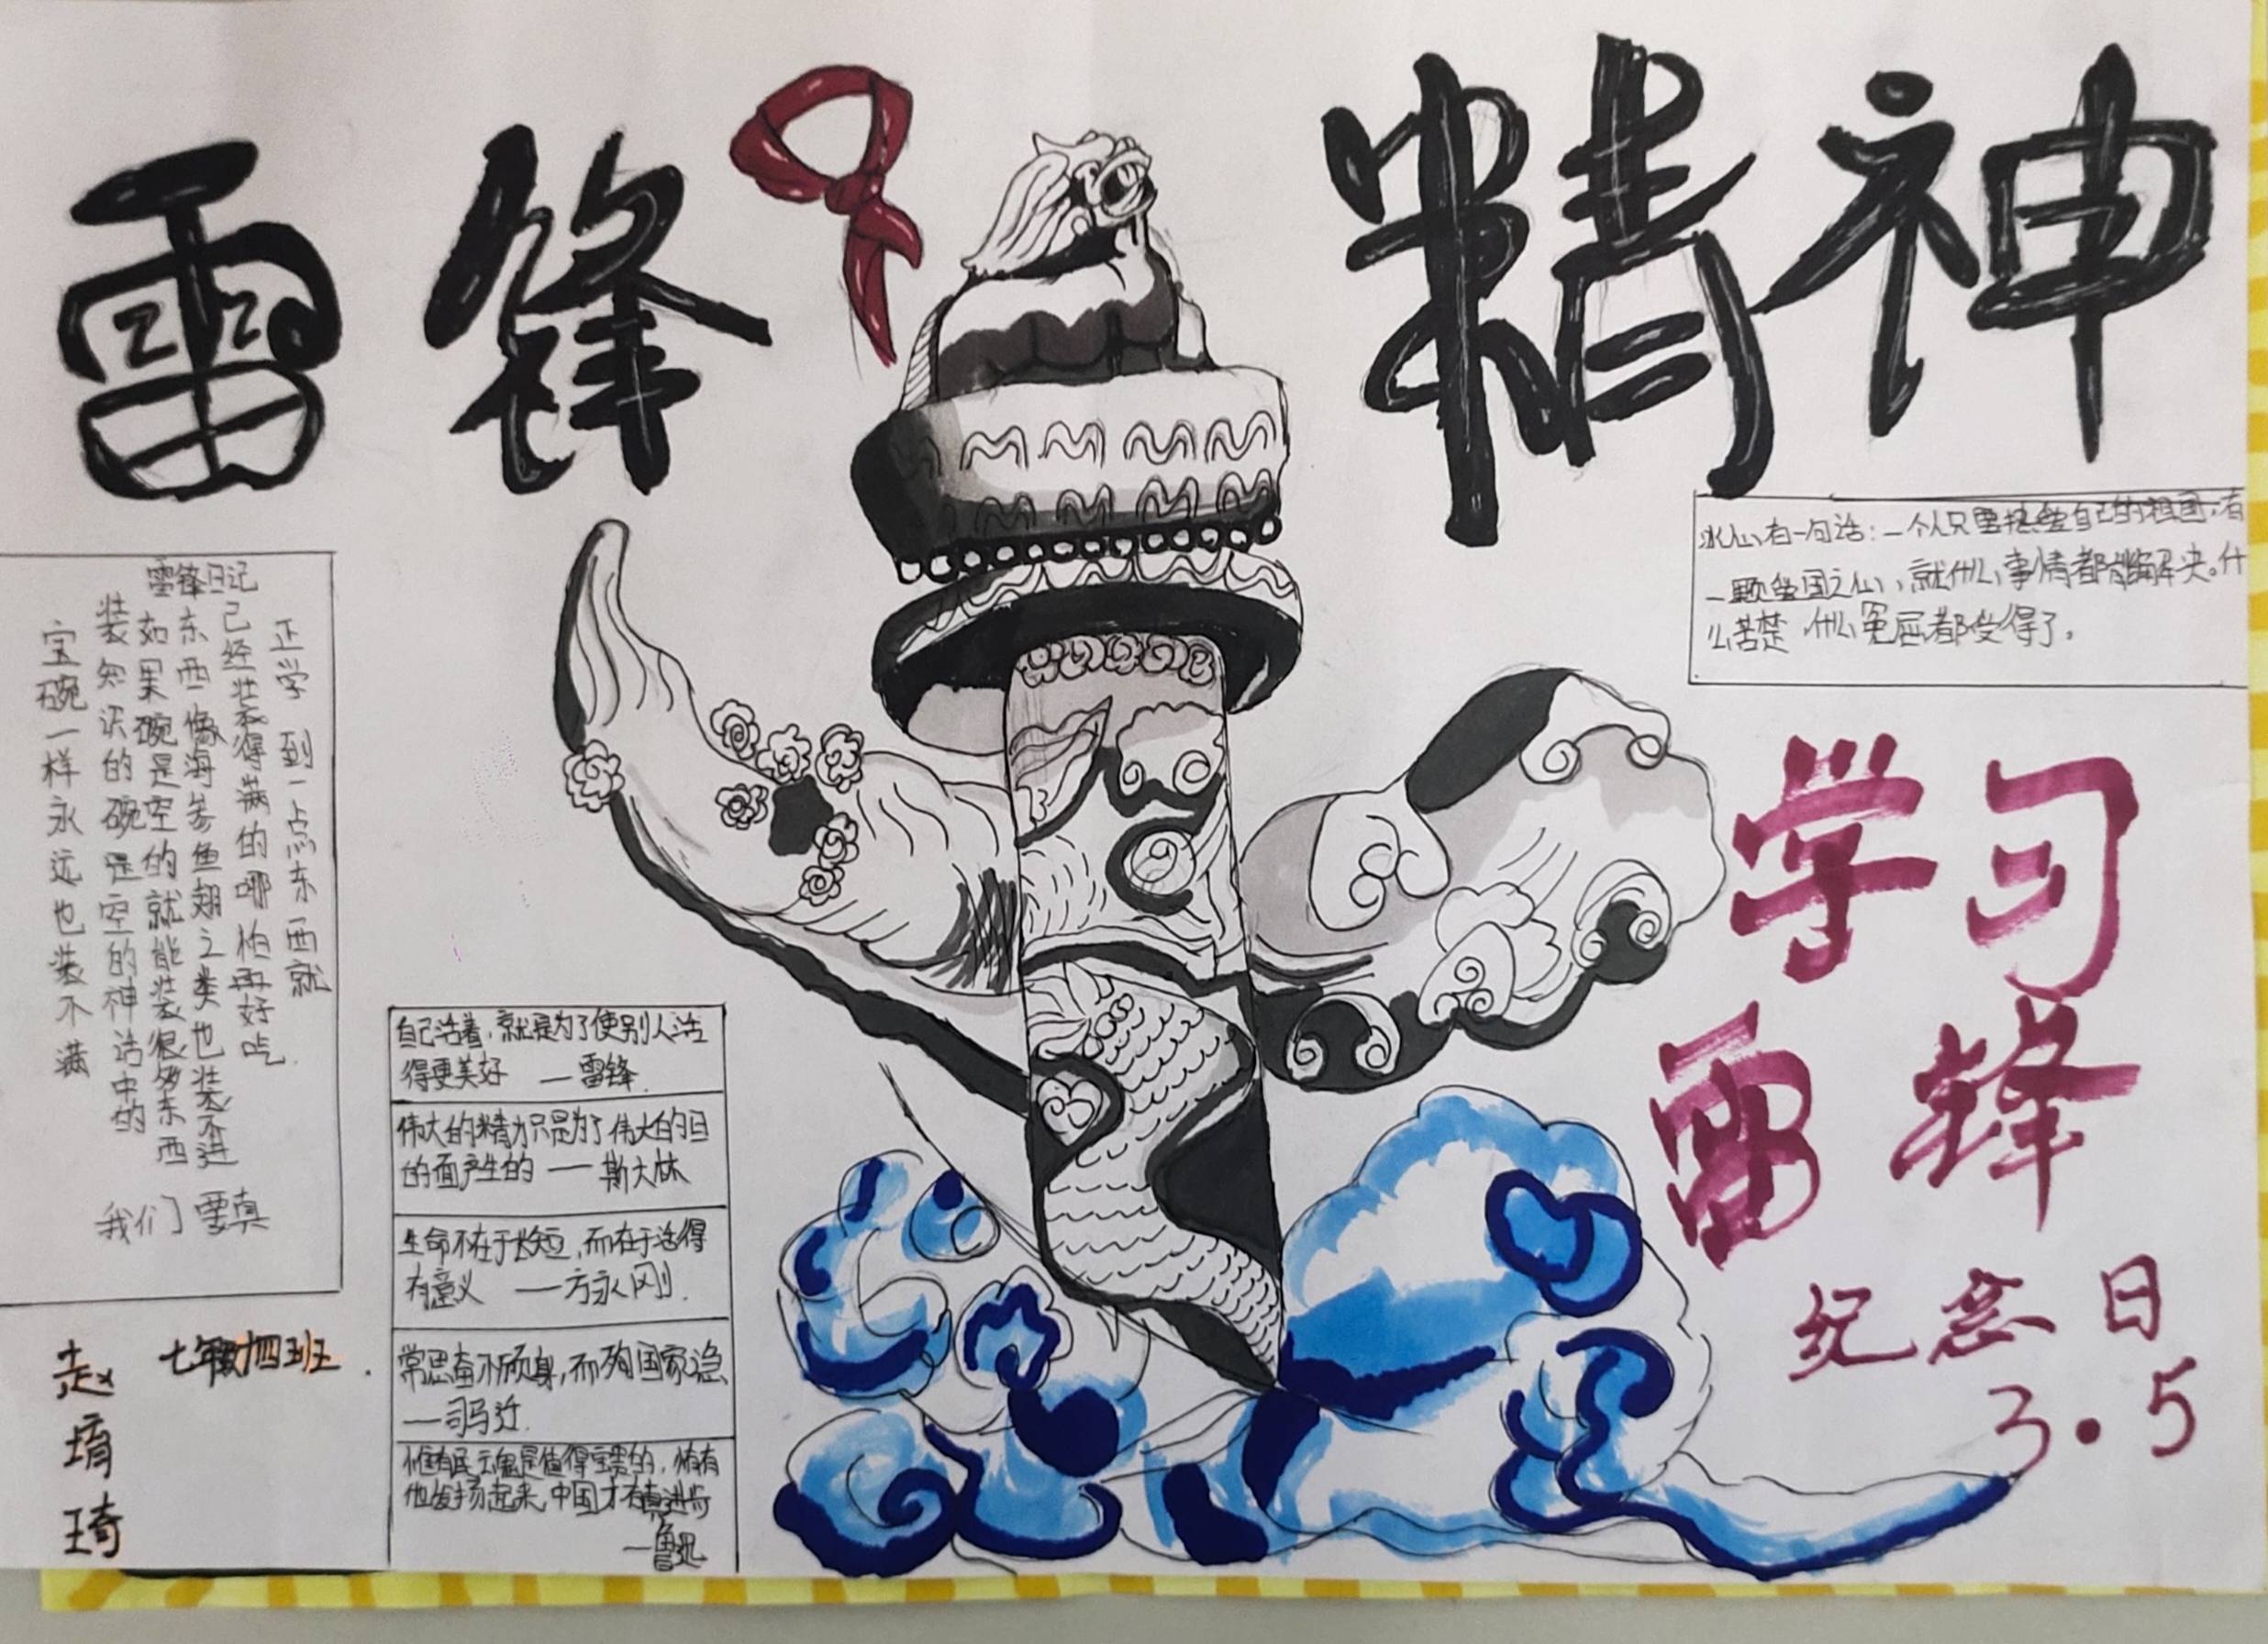 雷锋精神
冰心有一句话：一个人只要热爱自己的祖国，有
一颗爱国之心，就什么事情都能解决。什
么苦楚，什么冤屈都受得了。
雷锋日记
正学到一点东西就
已经装得满的哪怕再好吃
东西像海参鱼翅之类也装不进
如果碗是空的就能装很多东西
装知识的碗是空的神话中的
宝碗一样永远也装不满
我们要真
自己活着，就是为了使别人活
得更美好 —雷锋.
伟大的精力只是为了伟大的目
的而产生的 — 斯大林
生命不在于长短，而在于活得
有意义 —方永刚.
常思奋不顾身，而殉国家急
—司马迁.
惟有民魂是值得宝贵的，惟有
他发扬起来，中国才有真进步
—鲁迅
学习
雷锋
纪念日
3.5
七年级四班.
赵
琦